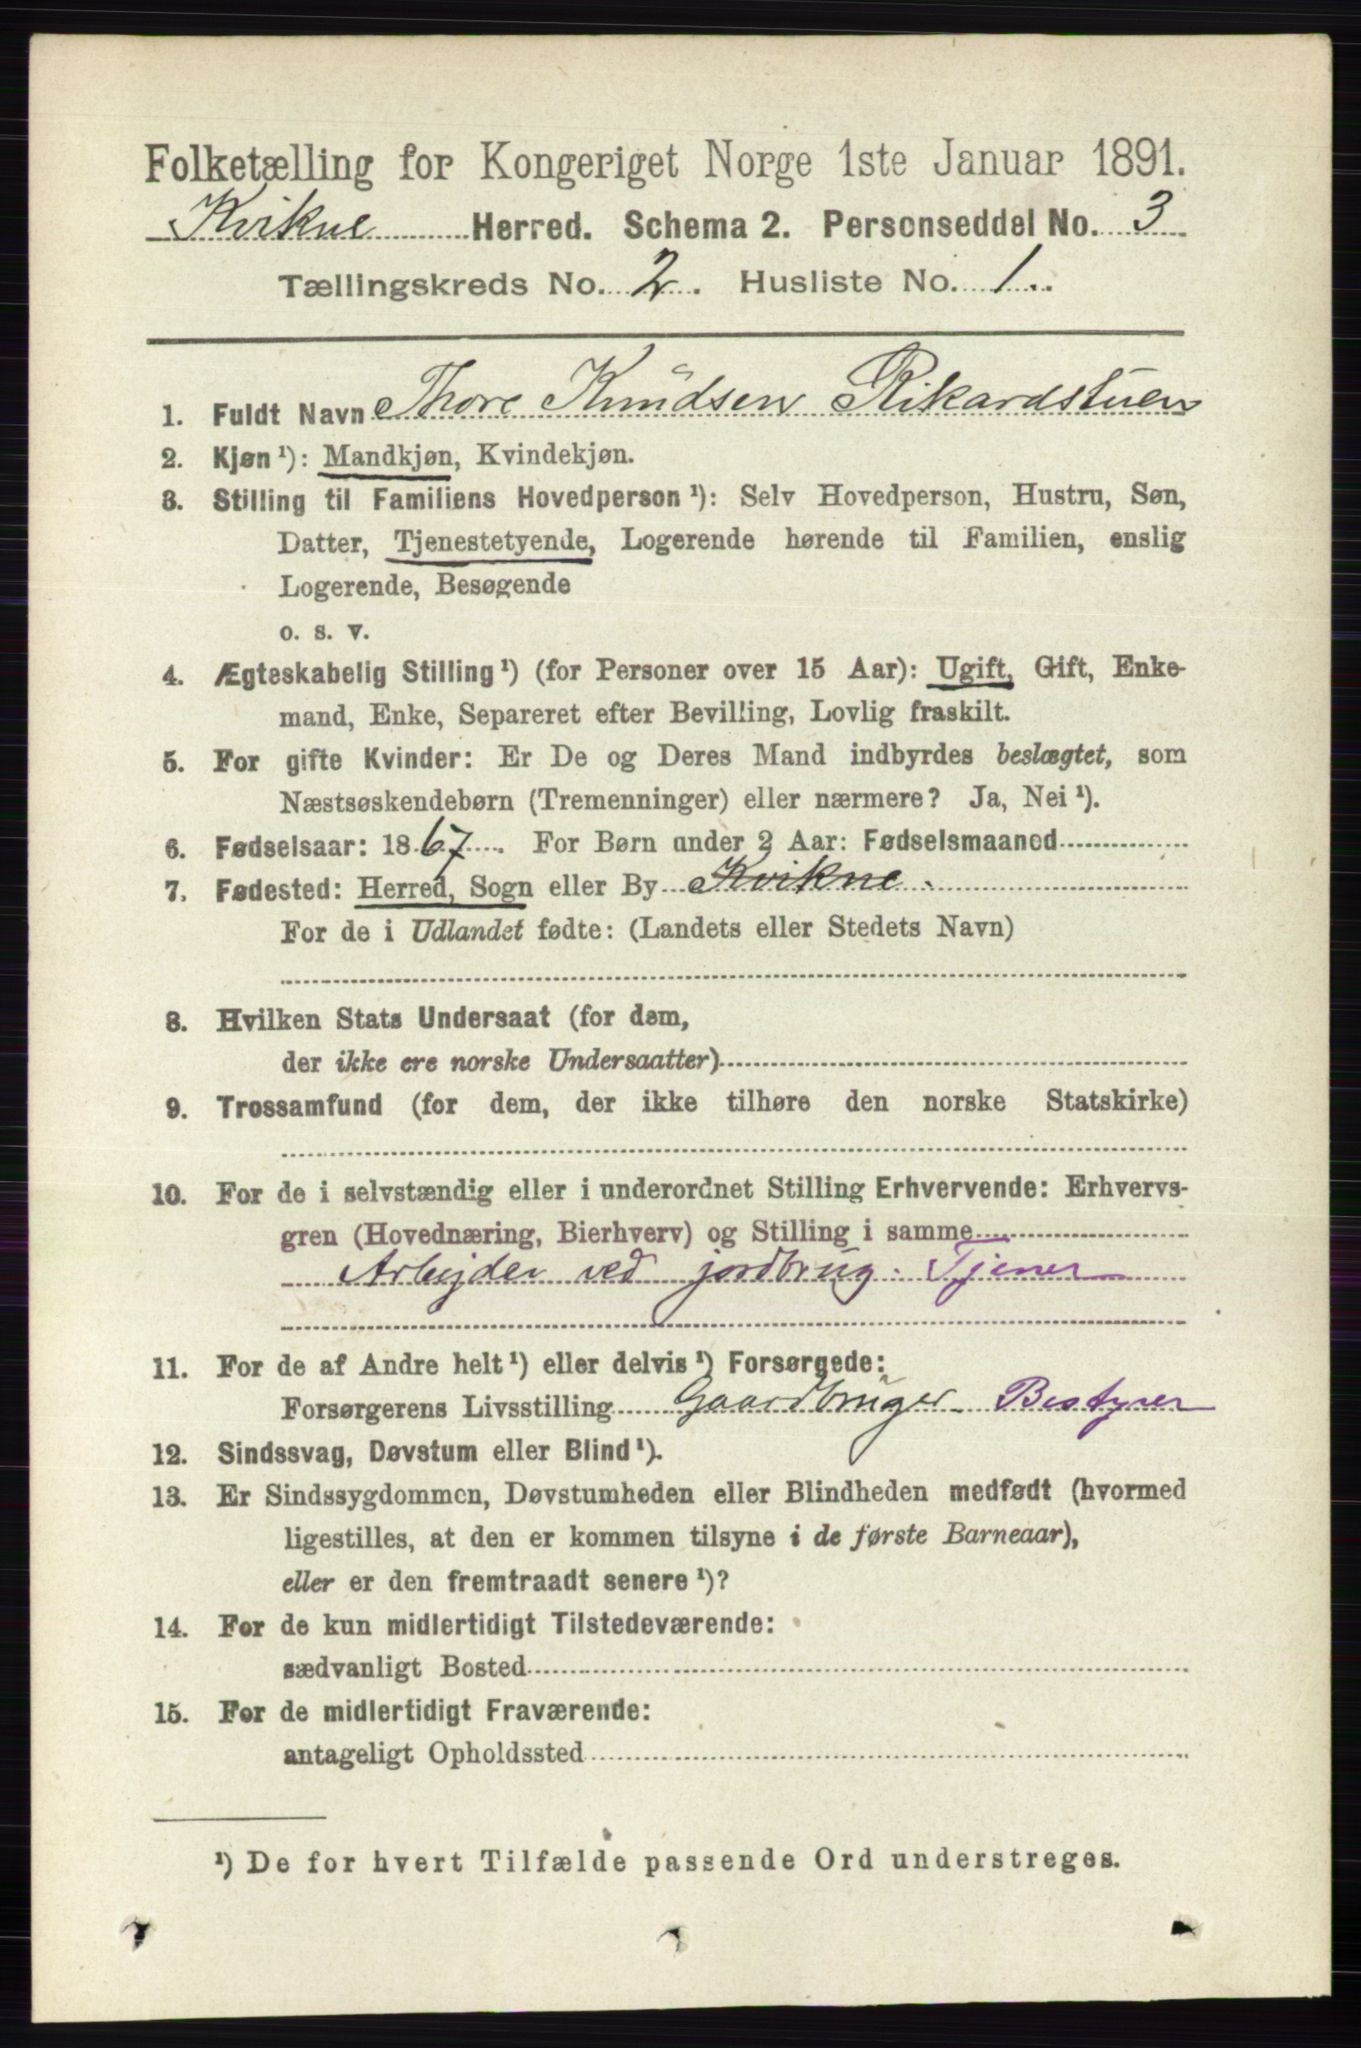 Folketælling for Kongeriget Norge 1ste Januar 1891.
Kvikne Herred. Schema 2. Personseddel No. 3
Tællingskreds No. 2. Husliste No. 1.
1. Fuldt Navn Thore Knudsen Rikardstuen
2. Kjøn¹): Mandkjøn, Kvindekjøn.
3. Stilling til Familiens Hovedperson¹): Selv Hovedperson, Hustru, Søn,
Datter, Tjenestetyende, Logerende hørende til Familien, enslig
Logerende, Besøgende
o. s. v.
4. Ægteskabelig Stilling¹) (for Personer over 15 Aar): Ugift, Gift, Enke-
mand, Enke, Separeret efter Bevilling, Lovlig fraskilt.
5. For gifte Kvinder: Er De og Deres Mand indbyrdes beslægtet, som
Næstsøskendebørn (Tremenninger) eller nærmere? Ja, Nei¹).
6. Fødselsaar: 1867. For Børn under 2 Aar: Fødselsmaaned
7. Fødested: Herred, Sogn eller By Kvikne.
For de i Udlandet fødte: (Landets eller Stedets Navn)
8. Hvilken Stats Undersaat (for dem,
der ikke ere norske Undersaatter)
9. Trossamfund (for dem, der ikke tilhøre den norske Statskirke)
10. For de i selvstændig eller i underordnet Stilling Erhvervende: Erhvervs-
gren (Hovednæring, Bierhverv) og Stilling i samme
Arbejder ved jordbrug. Tjener
11. For de af Andre helt¹) eller delvis¹) Forsørgede:
Forsørgerens Livsstilling Gaardbruger Bestyrer
12. Sindssvag, Døvstum eller Blind¹).
13. Er Sindssygdommen, Døvstumheden eller Blindheden medfødt (hvormed
ligestilles, at den er kommen tilsyne i de første Barneaar),
eller er den fremtraadt senere¹)?
14. For de kun midlertidigt Tilstedeværende:
sædvanligt Bosted
15. For de midlertidigt Fraværende:
antageligt Opholdssted
¹) De for hvert Tilfælde passende Ord understreges.